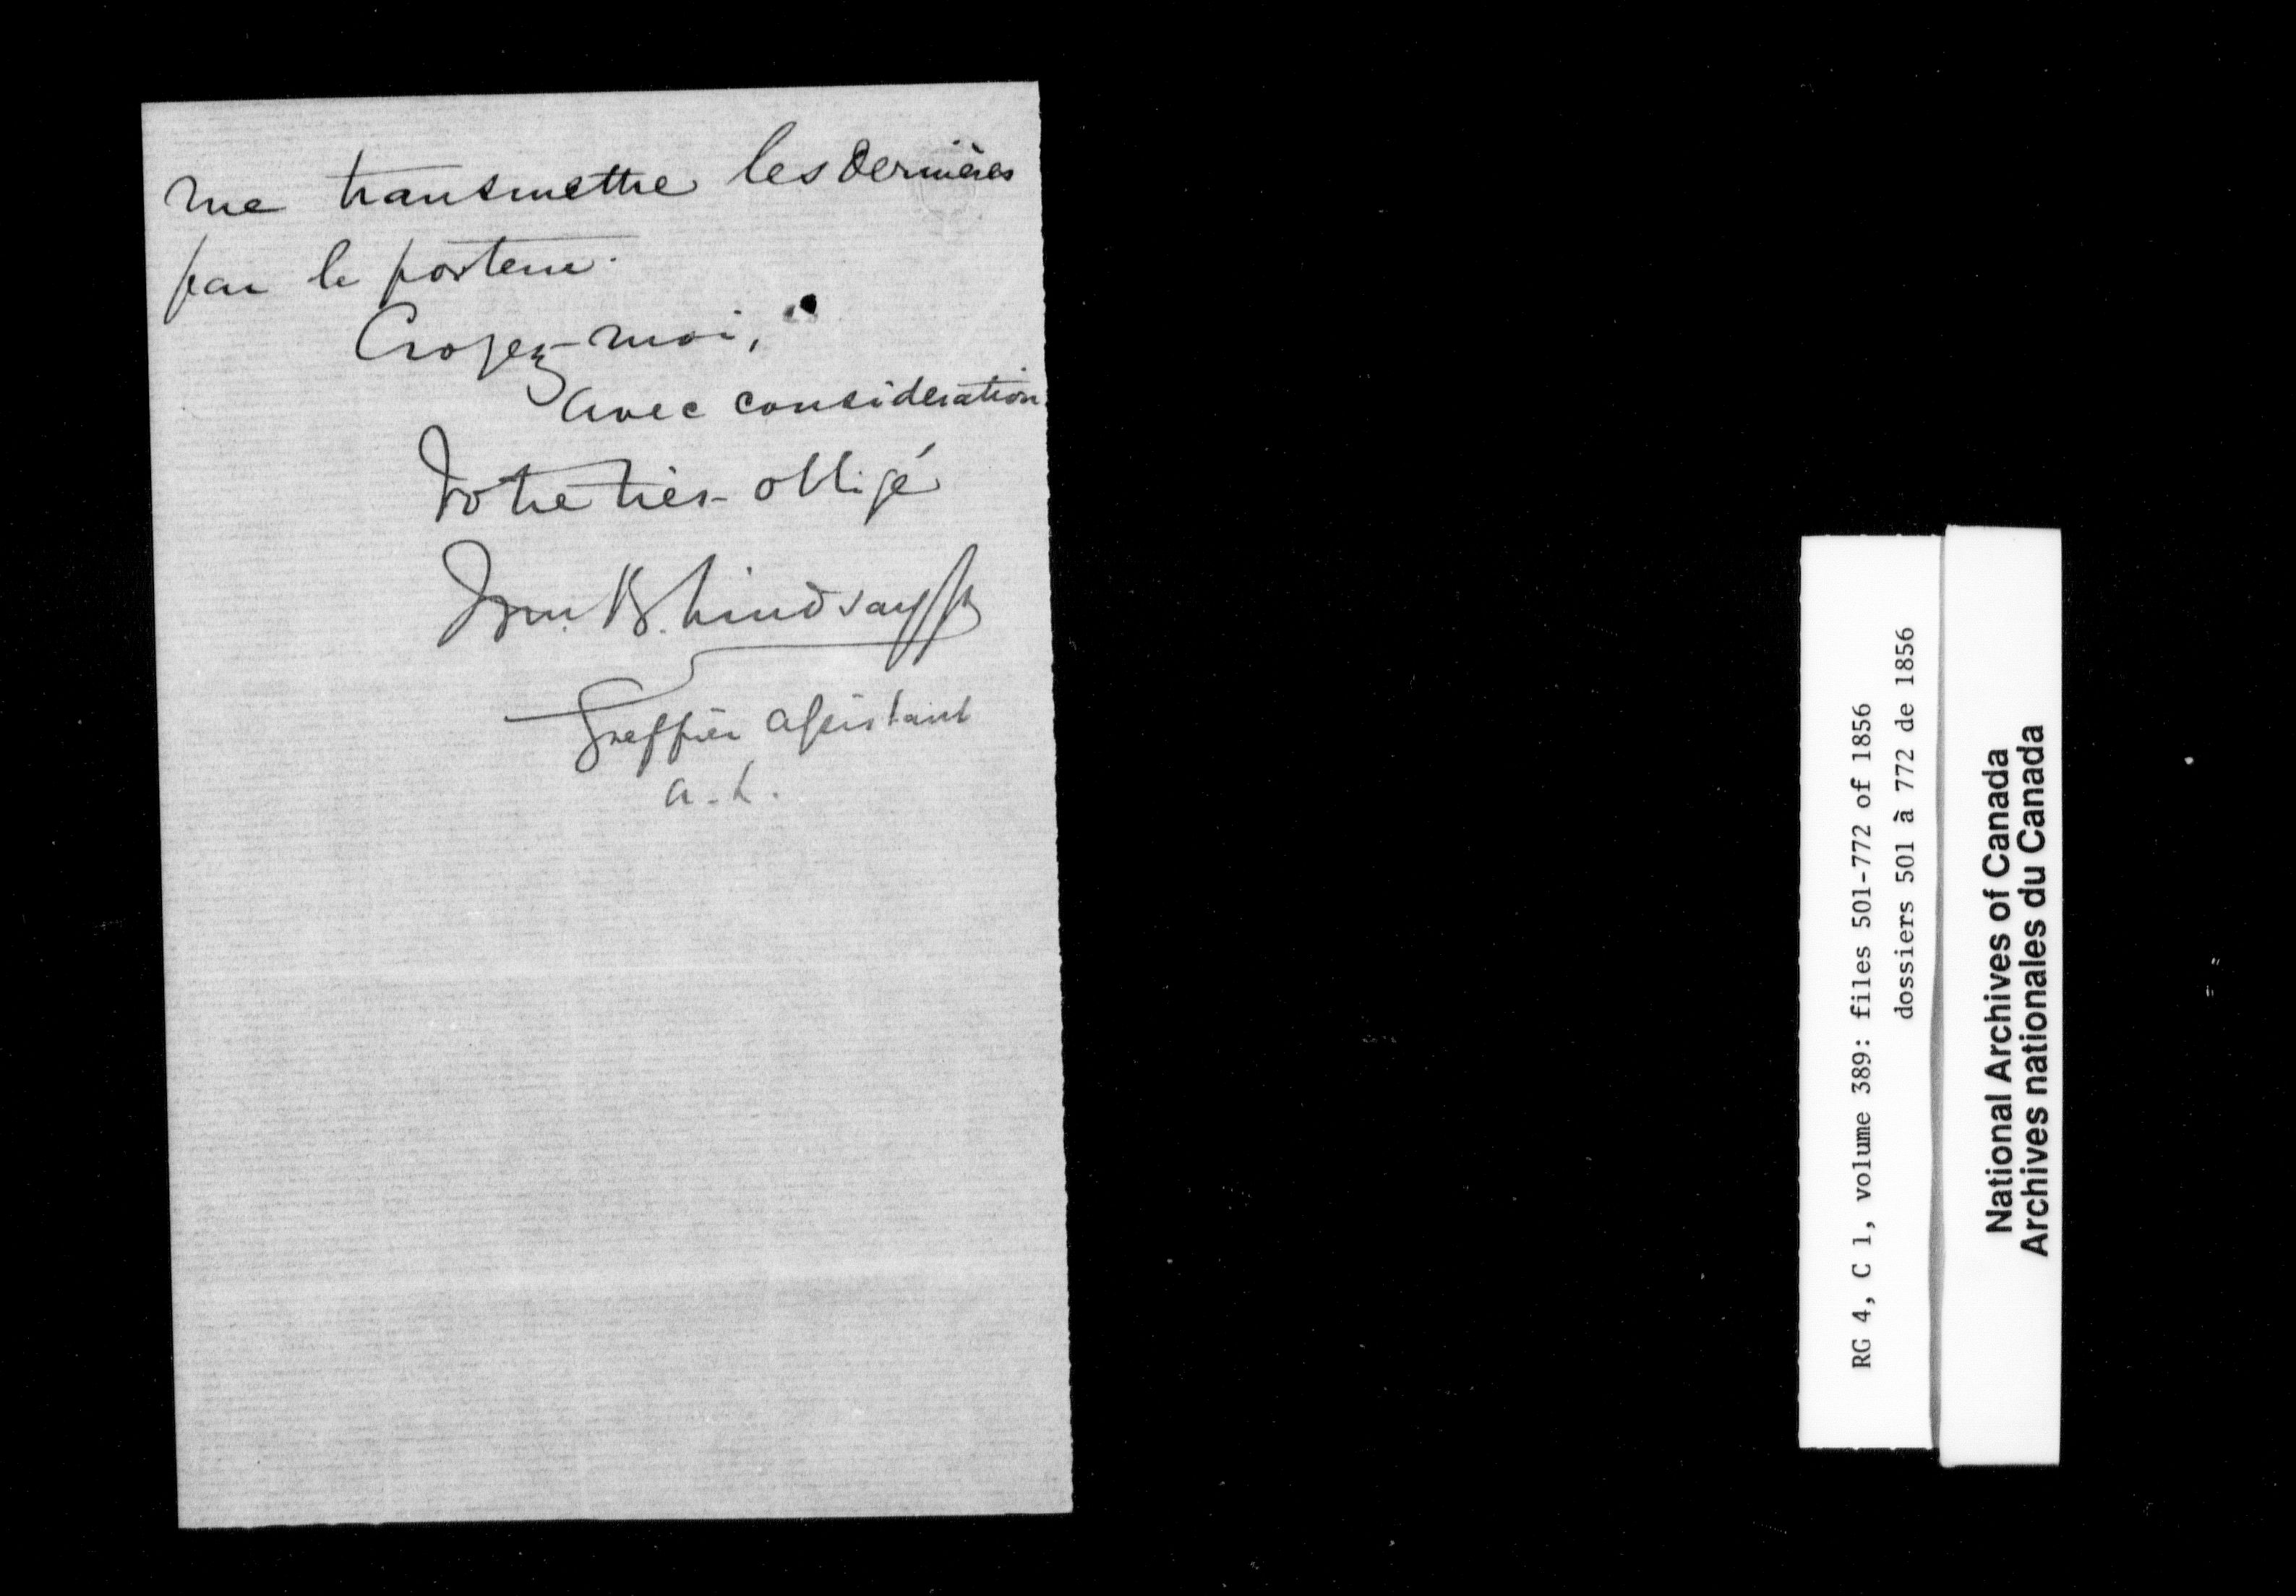 me transmettre les dernières
par le porteur.
Croyez-moi,
avec consideration
Votre très-obligé
Wm. B. Lindsay Jr
Greffier Assistant
A.L.
RG 4, C 1, volume 389: files 501-772 of 1856
dossiers 501 à 772 de 1856
National Archives of Canada
Archives nationales du Canada